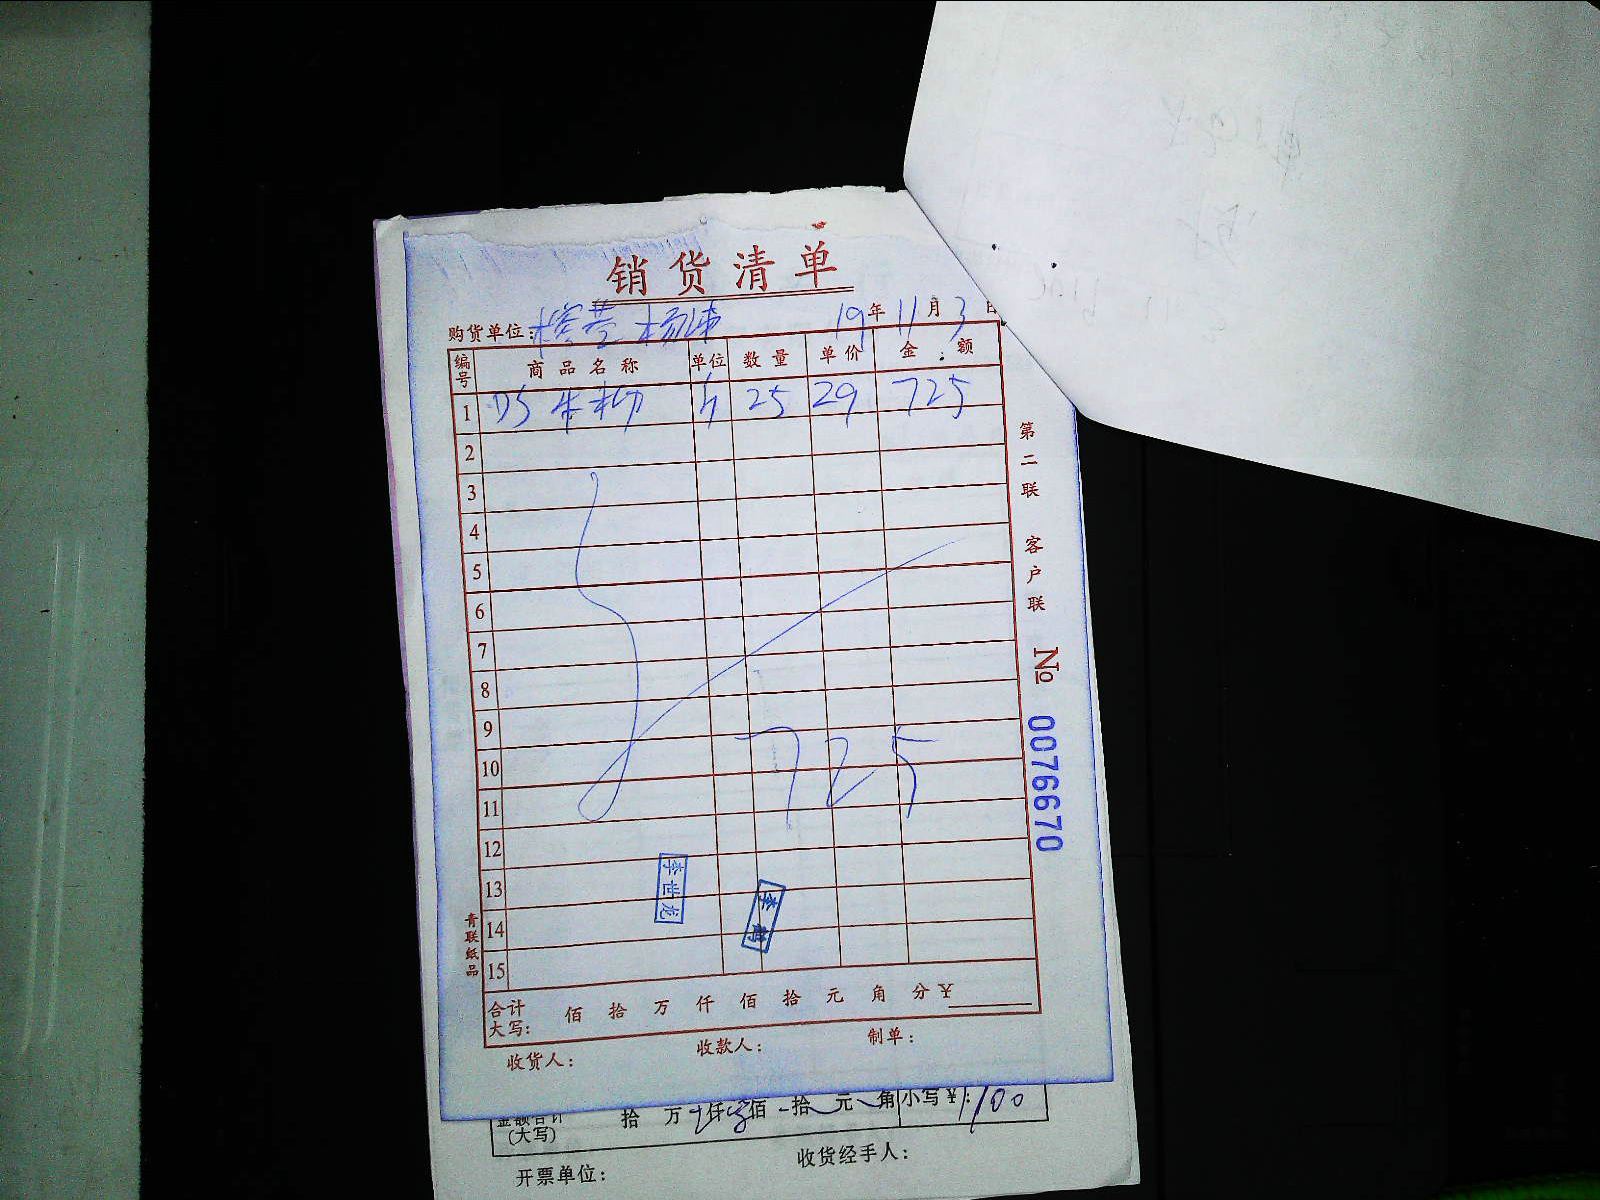 销货清单
购货单位： 杨 19年11月3日
编号 商品名称 单位 数量 单价 金额
1 25 29 725
2
3
4
5
6
7
8
9
10
11
12
13
14
15
725
李世龙
李
合计大写： 佰 拾 万 仟 佰 拾 元 角 分 ￥
收货人： 收款人： 制单：
第二联 客户联
№ 0076670
青联纸品
金额合计(大写) 拾 万 仟 佰 拾 元 角 小写￥： 1100
开票单位： 收货经手人：